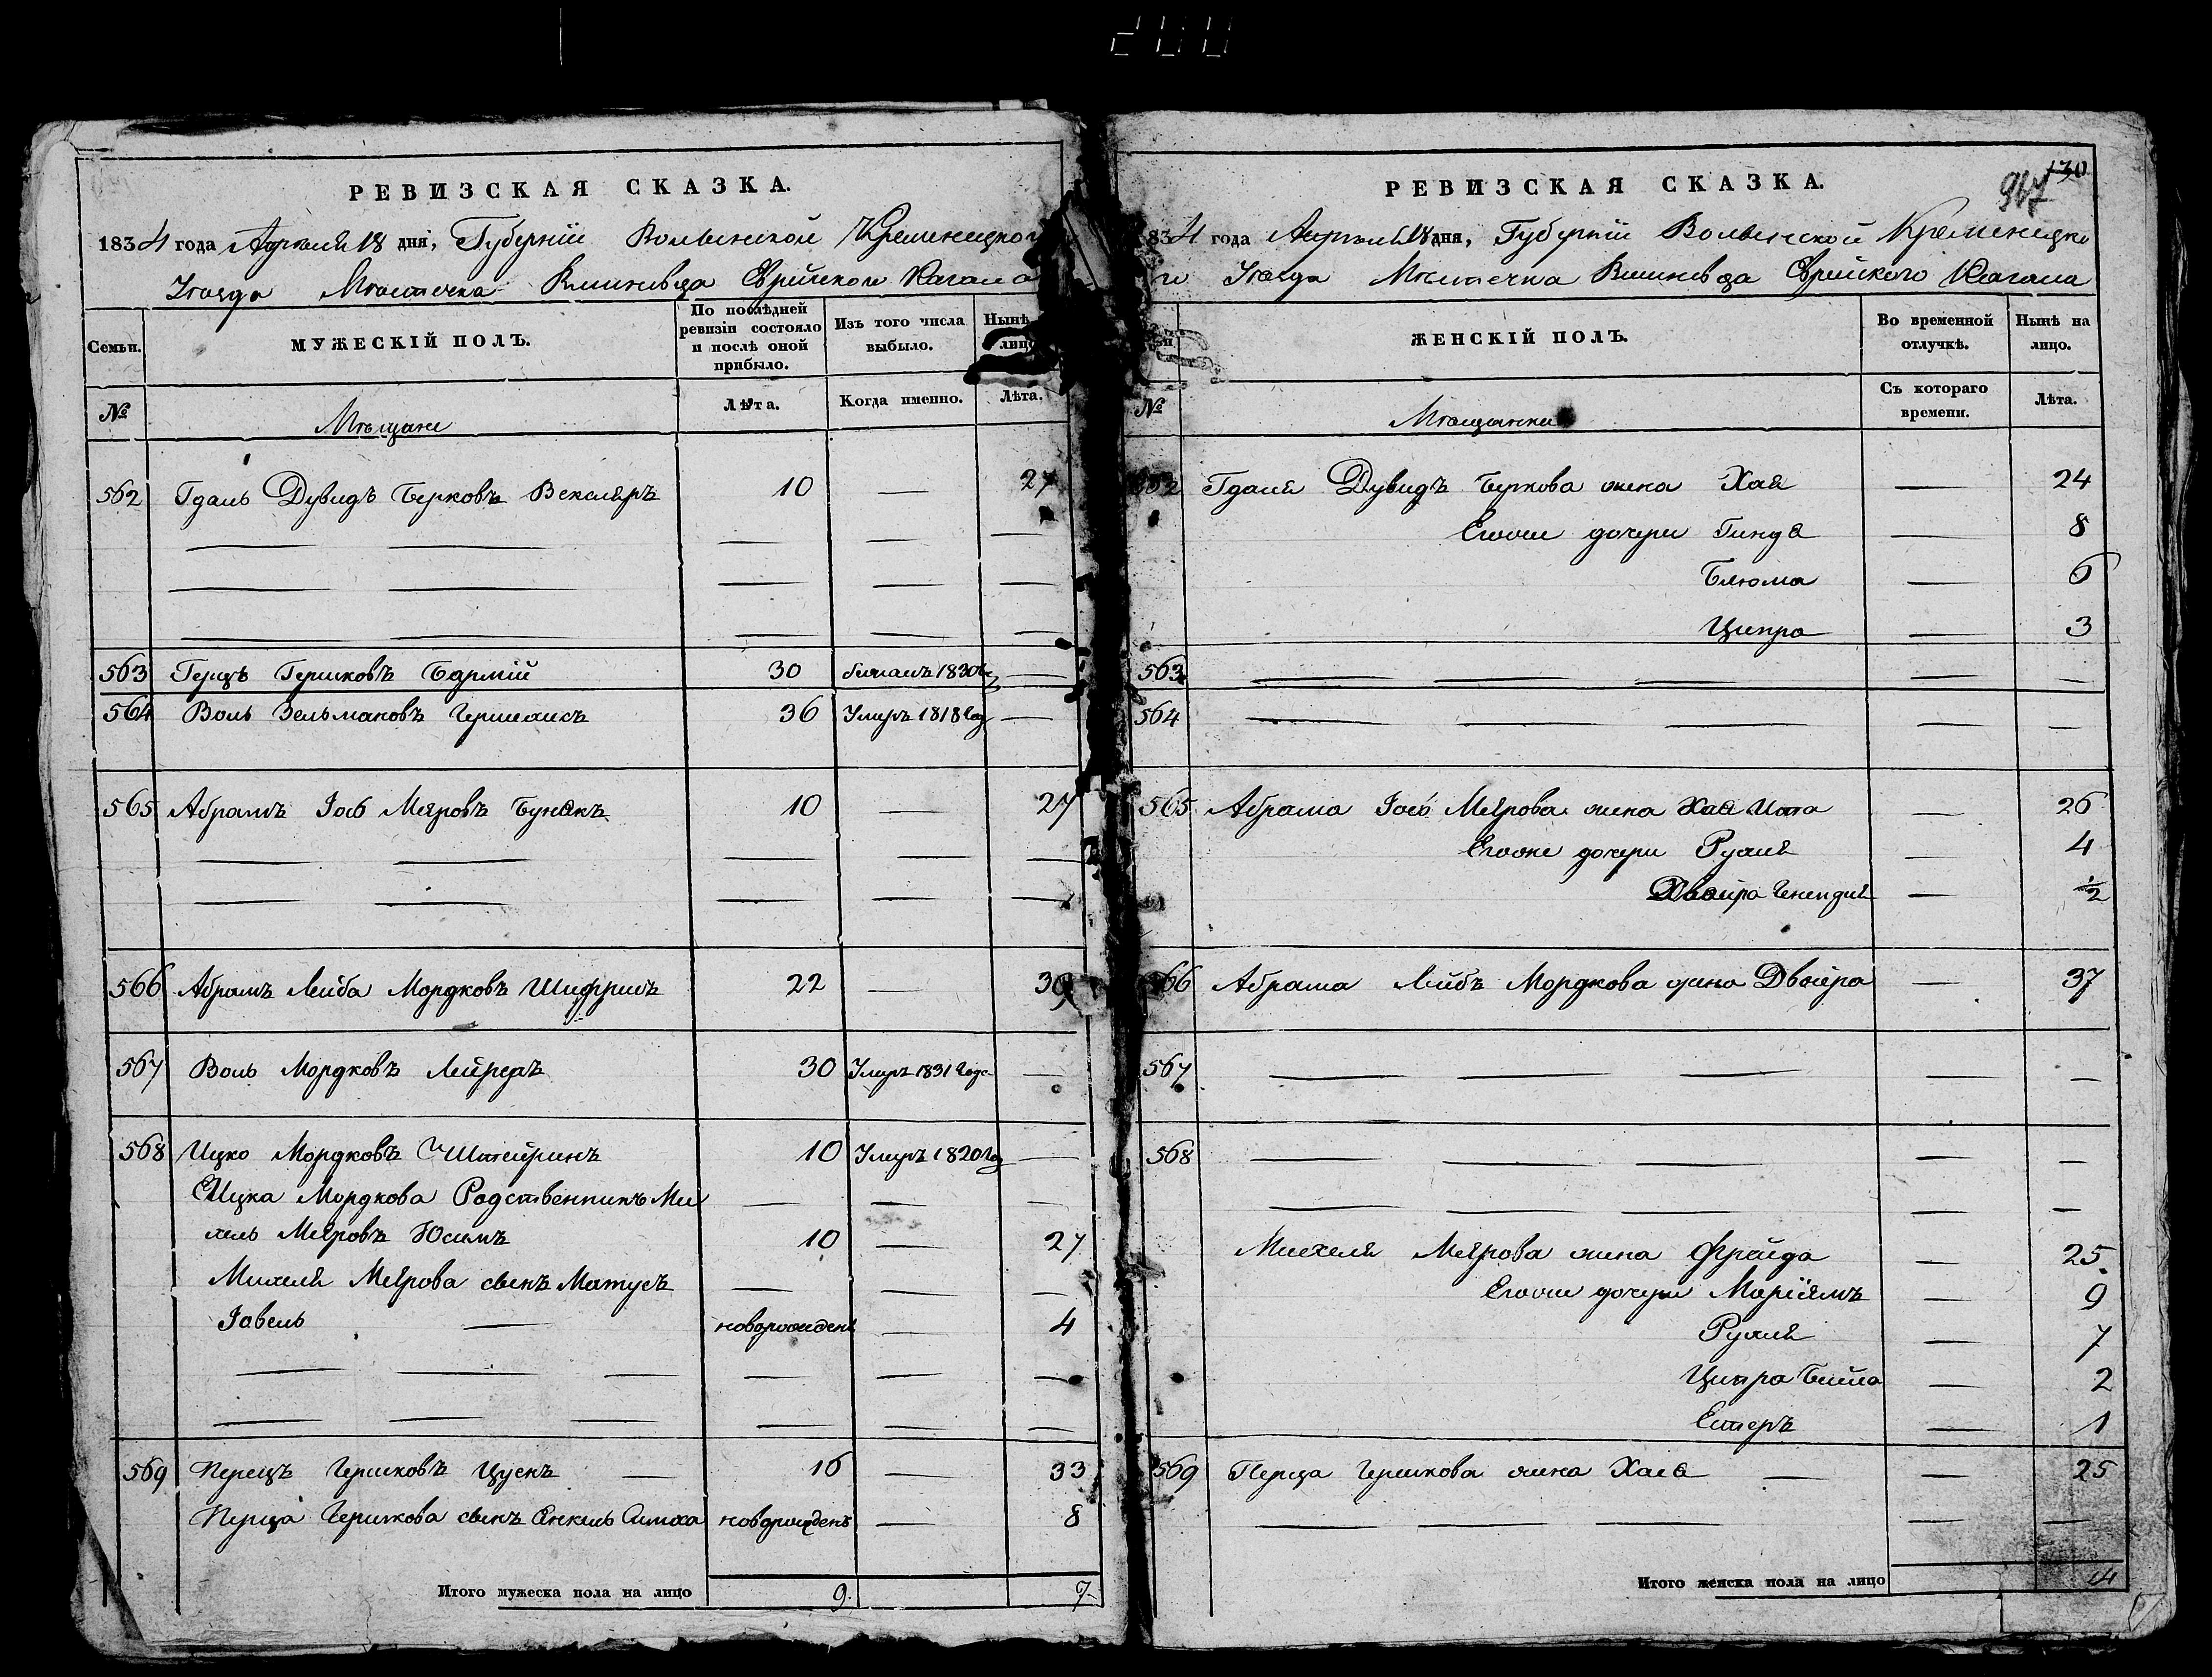 РЕВИЗСКАЯ СКАЗКА.
1834 года Апреля 18 дня, Губерніи Волынской Кременецкого
Уезда Местечка Вишневца Еврейского Кагала
Семьи. МУЖЕСКІЙ ПОЛЪ. По послѣдней ревизіи состояло и послѣ оной прибыло. Изъ того числа выбыло. Нынѣ лицо
№ Мѣщане Лѣта. Когда именно. Лѣта.
562 Гдаль Дувидъ Берковъ Векслеръ 10 — 27
— — — — —
— — — — —
— — — — —
563 Герцъ Гершковъ 30 1830 —
564 Воль Зельмановъ 36 Умеръ 1818 год —
565 Абрамъ Іось Меяровъ 10 — 27
— — — — —
— — — — —
566 Абрамъ Лейба Мордковъ Шифринъ 22 — 39
567 Воль Мордковъ 30 Умеръ 1831 года —
568 Ицко Мордковъ Штейринъ 10 Умеръ 1820 год —
Ицка Мордкова Родственникъ Ми — — —
хель Меяровъ Юсимъ 10 — 27
Михеля Меярова сынъ Матусъ — — —
Іовель — новорожденъ — 4
— — — — — —
— — — — — —
569 Перецъ Гершковъ Цукъ — 16 — 33
Перца Гершкова сынъ Енкель Симха новорожденъ — 8
Итого мужеска пола на лицо 9. 7
130
967
РЕВИЗСКАЯ СКАЗКА.
834 года Апреля 18 дня, Губерніи Волынской Кременецко
го Уезда Местечка Вишневца Еврейского Кагала
ЖЕНСКІЙ ПОЛЪ. Во временной отлучкѣ. Нынѣ на лицо.
№ Мѣщанки Съ котораго времени. Лѣта.
562 Гдаля Дувидъ Беркова жена Хая — 24
Егоже дочери Гинда — 8
Блюма — 6
Ципра — 3
563 — — — — —
564 — — — — —
565 Абрама Іось Меярова жена Хая Ита — 26
Егоже дочери Рухля — 4
Двойра Гнендля — 1/2
566 Абрама Лейбъ Мордкова жена Двойра — 37
567 — — — — —
568 — — — — —
— — — — —
Михеля Меярова жена Фрайда — 25
Егоже дочери Маріямъ — 9
Рухля — 7
Ципра Бейла — 2
Естеръ — 1
569 Перца Гершкова жена Хая — — 25
— — — — —
Итого женска пола на лицо 14